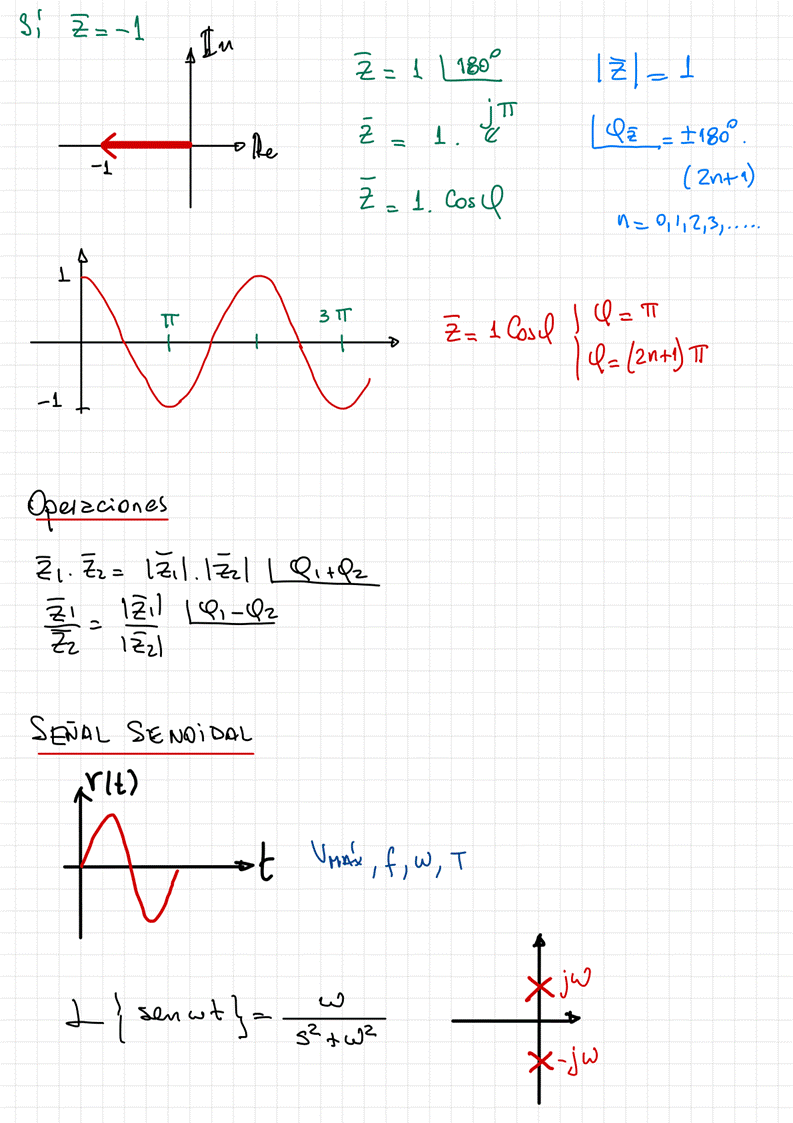 Sí z̄ = -1
Im
Re
-1
z̄ = 1 ∠180°
z̄ = 1 . e^{jπ}
z̄ = 1 . Cosφ
|z̄| = 1
∠φz̄ = ±180° .
(2n+1)
n = 0,1,2,3,.....
1
π
3π
-1
z̄ = 1 Cosφ | φ = π
| φ = (2n+1) π
Operaciones
z̄₁ . z̄₂ = |z̄₁| . |z̄₂| ∠φ₁+φ₂
z̄₁/z̄₂ = |z̄₁|/|z̄₂| ∠φ₁-φ₂
SEÑAL SENOIDAL
r(t)
t
Vmáx, f, w, T
L { sen wt } = w/(s²+w²)
jw
-jw